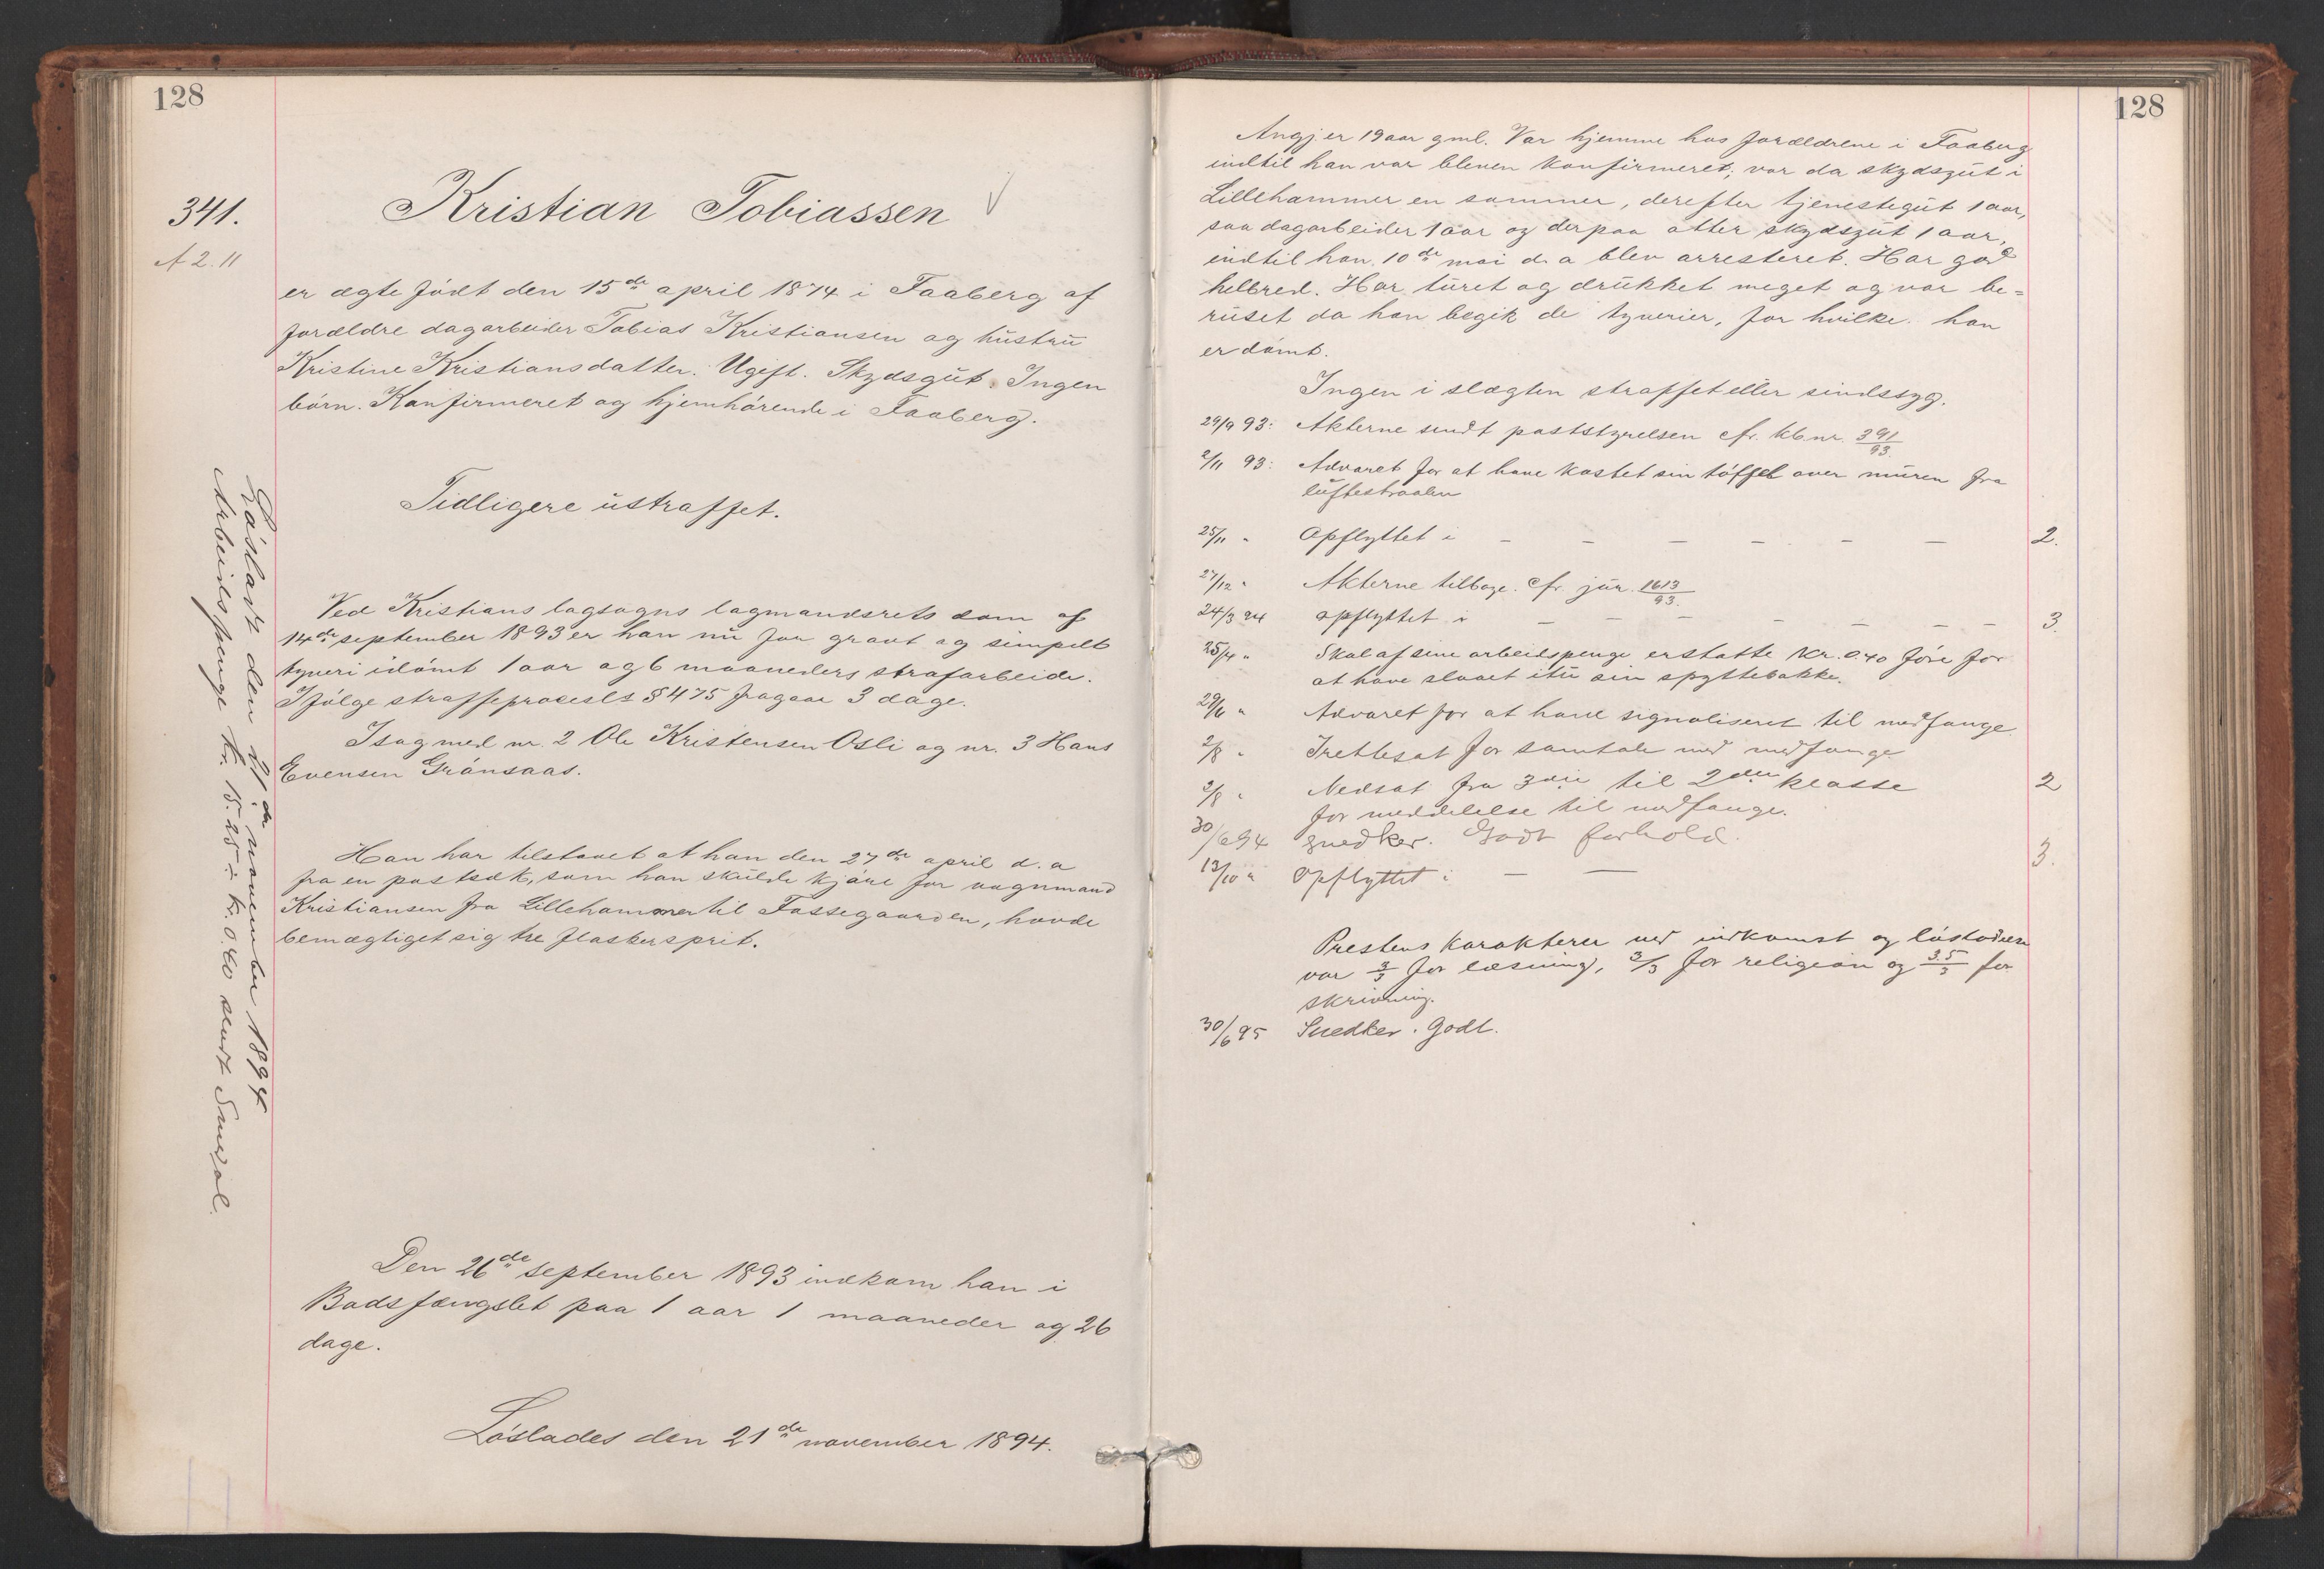 128
341.
A 2. 11
Kristian Tobiassen
er ægte födt den 15de april 1874 i Faaberg af
forældre dagarbeider Tobias Kristiansen og hustru
Kristine Kristiansdatter. Ugift. Skydsgut. Ingen
börn. Konfirmeret og hjemhörende i Faaberg.
Tidligere ustraffet.
Ved Kristians lagsogns lagmandsrets dom af
14de september 1893 er han nu for grovt og simpelt
tyveri idömt 1 aar og 6 maaneders strafarbeide.
Ifölge straffeprocesls § 475 fragaar 3 dage.
Isag med nr. 2 Ole Kristensen Osli og nr. 3 Hans
Evensen Grönsaas.
Han har tilstaaet at han den 27de april d. a
fra en postsæk, som han skulde kjöre for vognmand
Kristiansen fra Lillehammer til Fossegaarden, havde
bemægtiget sig tre flasker sprit.
Den 26de september 1893 indkom han i
Bodsfængslet paa 1 aar 1 maaneder og 26
dage.
Löslades den 21de november 1894.
Lösladt den 21de november 1894
Arbeidspenge kr. 15.25 ÷ kr. 0.40 sendt
128
Angj er 19 aar gml. Var hjemme hos forældrene i Faaberg
indtil han var bleven konfirmeret; var da skydsgut i
Lillehammer en sommer, derefter tjenestegut 1 aar,
saa dagarbeider 1 aar og derpaa atter skydsgut 1 aar,
indtil han 10de mai d. a blev arresteret. Har god
helbred. Har turet og drukket meget og var be=
ruset da han begik de tyverier, for hvilke han
er dömt.
Ingen i slægten straffet eller sindssyg.
29/9 93: Akterne sendt poststyrelsen cfr. kb nr. 391/93.
2/11 93: Advaret for at have kastet sin töffel over muren fra
luftestraalen
25/11 " Opflyttet i – – – – – – 2.
27/12 " Akterne tilbage. cfr. jur. 1613/93.
24/3 94 opflyttet i – – – – – – – 3.
25/4 " Skal af sine arbeidspenge erstatte kr. 0.40 före for
at have slaaet itu sin spyttebakke.
29/6 " Advaret for at have signaliseret til medfange
2/8 " Irettesat for samtale med medfange
2/8 " Nedsat fra 3die til 2den klasse 2
for meddelelse til medfange.
30/6 94 snedker. Godt forhold.
13/10 " Opflyttet i – – 3.
Prestens karakterer ved indkomst og lösladelse
var 3/3 for læsning, 3/3 for religion og 3.5/3 for
skrivning.
30/6 95 Snedker. Godt.